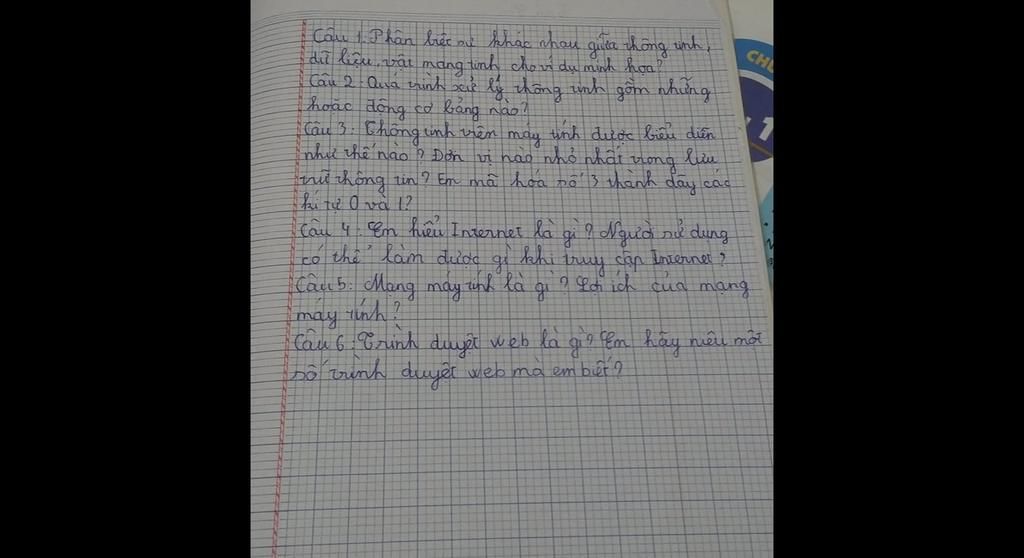 Câu 1: Phân biệt sự khác nhau giữa thông tinh,
dữ liệu, vật mang tinh cho ví dụ minh họa?
Câu 2: Quá trình xử lý thông tinh gồm những
hoặc động cơ bảng nào?
Câu 3: Thông tinh trên máy tính được biểu diễn
như thế nào? Đơn vị nào nhỏ nhất trong lưu
trữ thông tin? Em mã hóa số 3 thành dãy các
kí tự 0 và 1?
Câu 4: Em hiểu Internet là gì? Người sử dụng
có thể làm được gì khi truy cập Internet?
Câu 5: Mạng máy tính là gì? Lợi ích của mạng
máy tính?
Câu 6: Trình duyệt web là gì? Em hãy nêu một
số trình duyệt web mà em biết?
CHỦ
1